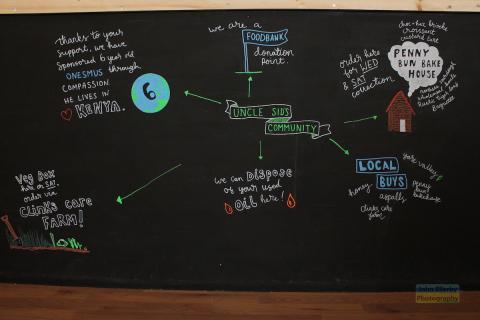 thanks to your
support, we have
Sponsored 6 year old
ONESMUS through
COMPASSION.
HE LIVES IN
KENYA.
6
we are a
FOODBANK
donation
Point.
UNCLE SID'S
COMMUNITY
order here
for WED
& SAT
collection
choc-hic brioche
croissant
custard tart
PENNY
BUN BAKE
HOUSE
Baguette
LOCAL
BUYS
yare valley
honey
aspalls
penny
bun
bakehouse
clinks care
farm
we can DISPOSE
of your used
OIL here!
Veg Box
order via
clinks care
FARM!
John Ellerby
Photography